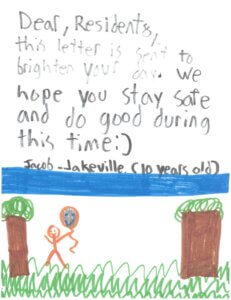 Dear, Residents,
this letter is sent to
brighten your day. We
hope you stay safe
and do good during
this time:)
Jacob - Jakeville (10 years old)